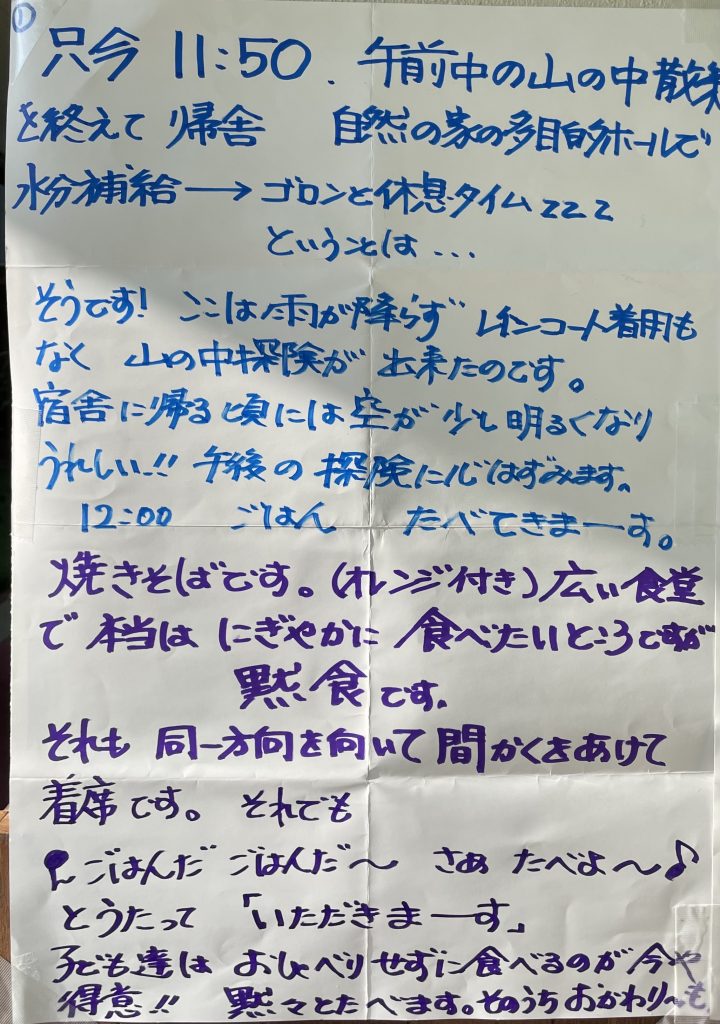 ①
只今 11:50. 午前中の山の中散策
を終えて帰舎 自然の家の多目的ホールで
水分補給→ゴロンと休息タイムzzz
ということは...
そうです! ここは雨が降らず レインコート着用も
なく 山の中探険が 出来たのです。
宿舎に帰る頃には空が少し明るくなり
うれしい!! 午後の探険に心はずみます。
12:00 ごはん たべてきまーす。
焼きそばです。(オレンジ付き)広い食堂
で 本当は にぎやかに 食べたいところですが
黙食です。
それも 同一方向を向いて 間かくをあけて
着席です。 それでも
ごはんだ ごはんだ〜 さあ たべよ〜♪
とうたって 「いただきまーす」
子ども達は おしゃべりせずに食べるのが 今や
得意!! 黙々とたべます。そのうちおかわり〜も